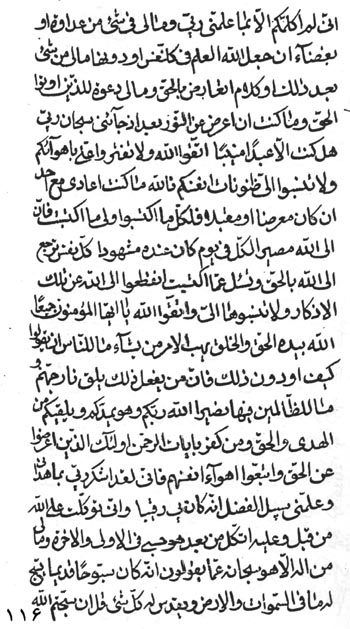 انى لم اكلمكم الّا بما علمنى ربّى و ما لى فى شئ من عداوة او
بغضآء ان جعل الله العلم فى كل نفس او دونها ما لى من شئ
بعد ذلك او كلام انّما يعرض بالحق و ما لى دعوة للذين اوتوا
الحق و ما كنت ان اعرض عن النور بعد اذ جآئنى سبحان ربّى
هل كنت الّا عبدًا منيبًا اتقوا الله و لا تفتروا علىّ باهوآئكم
و لا تنسبوا الى ظنونات انفسكم فالله ما كنت اعادى مع احد
ان كان معرضا او مقبلا فلكل ما اكتسبوا ولى ما اكتسبت فانّ
الى الله مصير الكل فى يوم كان عنده مشهودا كل نفس ترجع
الى الله بالحق و تسئل عمّا اكتسبت انقطعوا الى الله عن تلك
الاذكار و لا تنسبوها الىّ و اتقوا الله يا ايّها المؤمنون جميعًا
الله بيده الحق و الخلق يهب الامر من يشآء ما للناس ان يقولوا
كيف او دون ذلك فانّ من يفعل ذلك يلق نار جهنّم و
ما للظالمين فيها نصيرا الله ربكم و هو يهديكم و يلقيكم من
الهدى و الحق و من كفر بايات الرحمن اولئك الذين اعرضوا
عن الحق و اتبعوا اهوآء انفسهم فانى لقد اشكر ربّى بما هدانى
و علّمنى سبل الفضل انّه كان بى رقيبا و انى توكلت على الله
من قبل و عليه اتكل من بعد هو حسبى فى الاولى و الاخرة و ما لى
من اله الّا هو سبحان عمّا يقولون انّه كان سبّوحا قديما يسبّح
له ما فى السموات و الارض و يقدس له كل شئ قل ان سبّحتم الله
١١٦